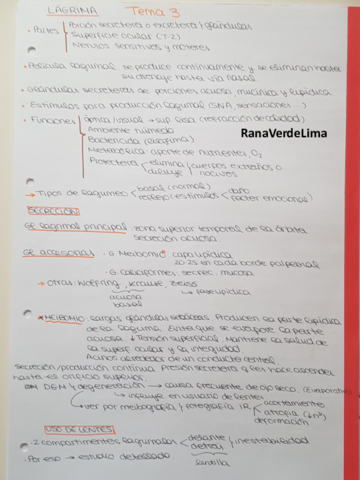 LÁGRIMA Tema 3
· Partes Porción secretora o excretora / glándulas
Superficie ocular (7-2)
Nervios sensitivos y motores
· Película lagrimal se produce continuamente y se eliminan hasta
su drenaje hasta vía nasal
· Glándulas secretoras de porciones acuosa, mucínica y lipídica.
· Estímulos para producción lagrimal (SNA, sensaciones...)
· Funciones óptica/visual → sup lisa (refracción de calidad)
Ambiente húmedo
Bactericida
Metabólica: aporte de nutrientes, O2
Protectora elimina cuerpos extraños o
diluye nocivos
RanaVerdeLima
→ Tipos de lagrimeo basal (normal)
reflejo (estímulos) daño
factor emocional
SECRECIÓN
Gl lagrimal principal zona superior temporal de la órbita
secreción acuosa
Gl accesorias · G Meibomio capa lipídica
20-25 en cada borde palpebral
· G caliciformes, secrec. mucosa
→ otras: Wolfring, Krause, Zeiss
acuosa → fase lipídica
basal
MEIBOMIO: largas glándulas sebáceas. Producen la parte lipídica
de la lágrima. Evita que se evapore la parte
acuosa ↓ tensión superficial. Mantiene la salud de
la superf. ocular y la integridad
Acinos alrededor de un conducto central
secreción/producción continua. Presión secretora q les hace ascender
hasta el orificio superior.
DGM y degeneración → causa frecuente de ojo seco (Evaporativo)
→ incluye en usuario de lentes
→ ver por meibografía y fotografía IR acortamiento
atrofia (↓nº)
deformación
USO DE LENTES
· 2 compartimentos lagrimales delante / inestabilidad
detrás
· Por eso → estudio detallado